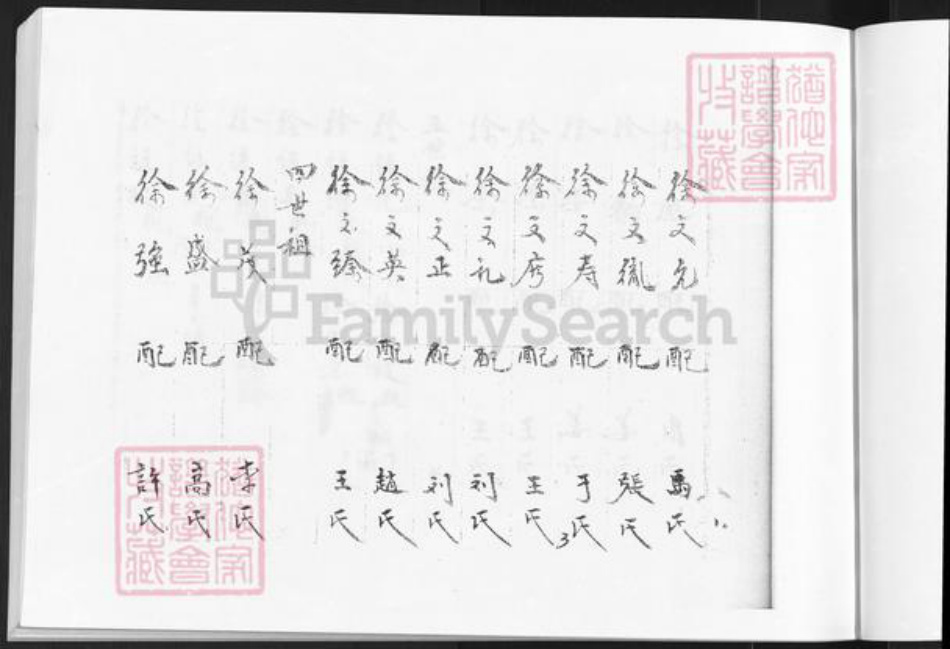 徐文允 配 禹氏
徐文胤 配 張氏
徐文寿 配 于氏
3
徐文 配 王氏
徐文礼 配 刘氏
徐文正 配 刘氏
徐文英 配 趙氏
徐文臻 配 王氏
四世祖
徐茂 配 李氏
徐盛 配 高氏
徐強 配 許氏
FamilySearch
譜學會
收藏
譜學會
收藏